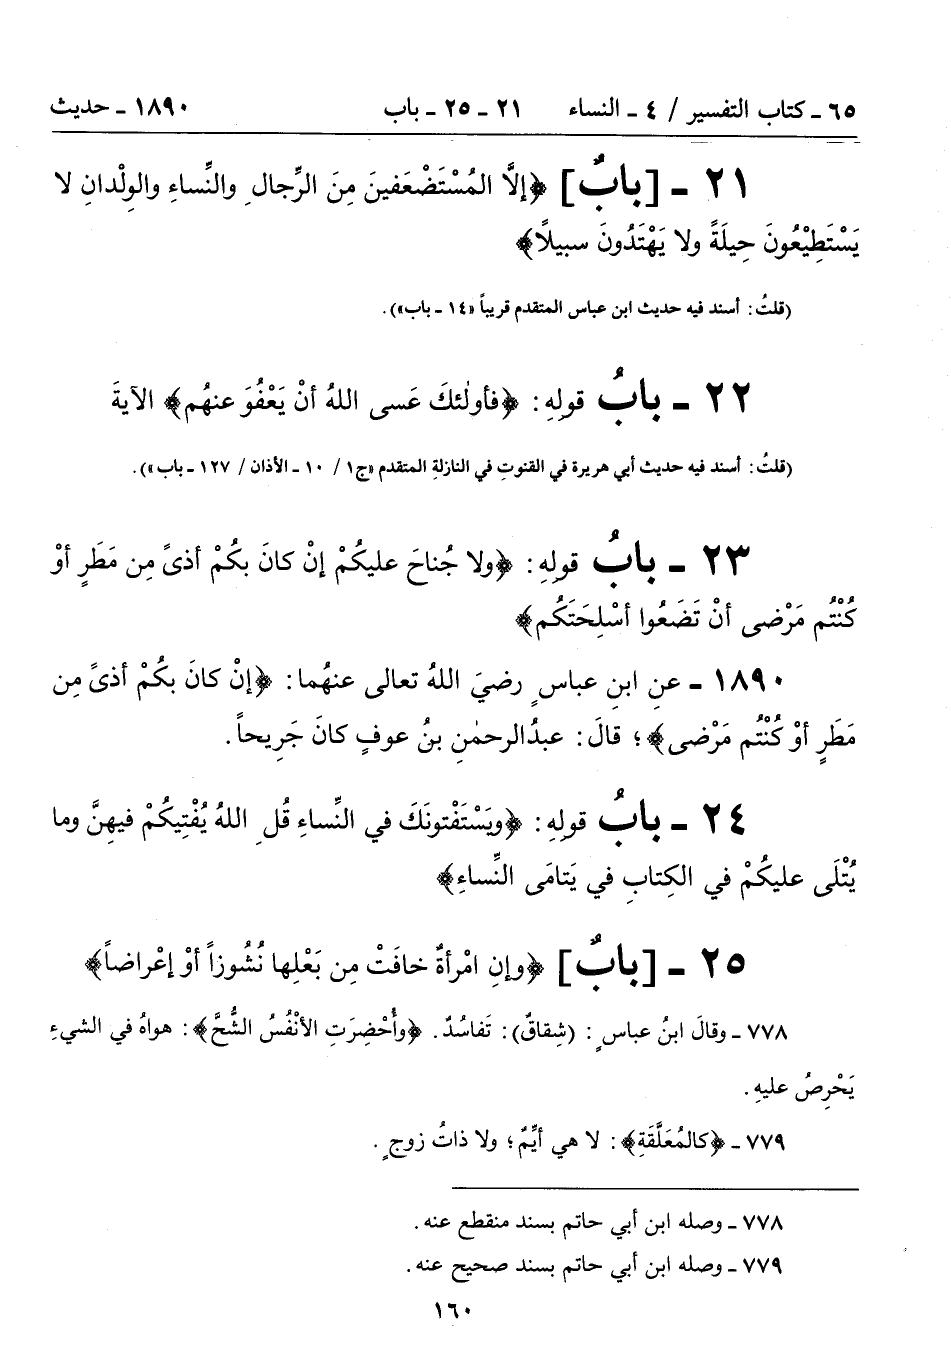 ٦٥ ـ كتاب التفسير / ٤ ـ النساء ٢١ ـ ٢٥ ـ باب ١٨٩٠ ـ حديث
٢١ ـ [بابٌ] ﴿إلَّا المُسْتَضْعَفينَ مِنَ الرِّجالِ والنِّساءِ والوِلْدانِ لا
يَسْتَطِيْعُونَ حِيلَةً ولا يَهْتَدُونَ سبيلاً﴾
(قلتُ: أسند فيه حديث ابن عباس المتقدم قريباً «١٤ ـ باب»).
٢٢ ـ بابُ قولِهِ: ﴿فأولٰئكَ عَسى اللهُ أنْ يَعْفُوَ عنهُم﴾ الآيةَ
(قلتُ: أسند فيه حديث أبي هريرة في القنوتِ في النازلةِ المتقدم «ج١ / ١٠ ـ الأذان / ١٢٧ ـ باب»).
٢٣ ـ بابُ قولِهِ: ﴿ولا جُناحَ عليكُمْ إنْ كانَ بكُمْ أذىً مِن مَطَرٍ أوْ
كُنْتُم مَرْضى أنْ تَضَعُوا أسْلِحَتَكُم﴾
١٨٩٠ ـ عنِ ابنِ عباسٍ رضيَ اللهُ تعالى عنهُما: ﴿إنْ كانَ بكُمْ أذىً مِن
مَطَرٍ أوْ كُنْتُم مَرْضى﴾؛ قالَ: عبدُالرحمٰنِ بنُ عوفٍ كانَ جَرِيحاً.
٢٤ ـ بابُ قولِهِ: ﴿ويَسْتَفْتونَكَ في النِّساءِ قُلِ اللهُ يُفْتِيكُمْ فيهِنَّ وما
يُتْلَى عليكُمْ في الكِتابِ في يَتامَى النِّساءِ﴾
٢٥ ـ [بابٌ] ﴿وإنِ امْرأةٌ خافَتْ مِن بَعْلِها نُشُوزاً أوْ إعْراضاً﴾
٧٧٨ ـ وقالَ ابنُ عباسٍ: (شِقاقٌ): تَفاسُدٌ. ﴿وأُحْضِرَتِ الأنْفُسُ الشُّحَّ﴾: هواهُ في الشيءِ
يَحْرِصُ عليهِ.
٧٧٩ ـ ﴿كالمُعَلَّقَةِ﴾: لا هي أيِّمٌ؛ ولا ذاتُ زوجٍ.
٧٧٨ ـ وصله ابن أبي حاتم بسند منقطع عنه.
٧٧٩ ـ وصله ابن أبي حاتم بسند صحيح عنه.
١٦٠